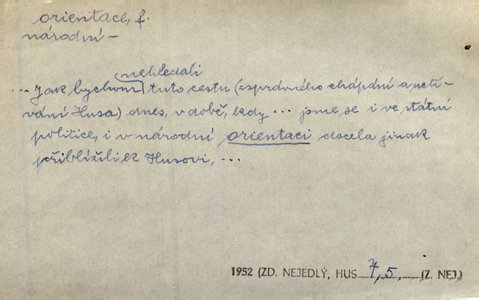 orientace, f.
národní –
nehledali
... Jak bychom tuto cestu (správného chápání a uctí-
vání Husa) dnes, v době, kdy ... jsme se i ve státní
politice, i v národní orientaci docela jinak
přiblížili k Husovi, ...
1952 (ZD. NEJEDLÝ, HUS 7, 5, (Z. NEJ.)